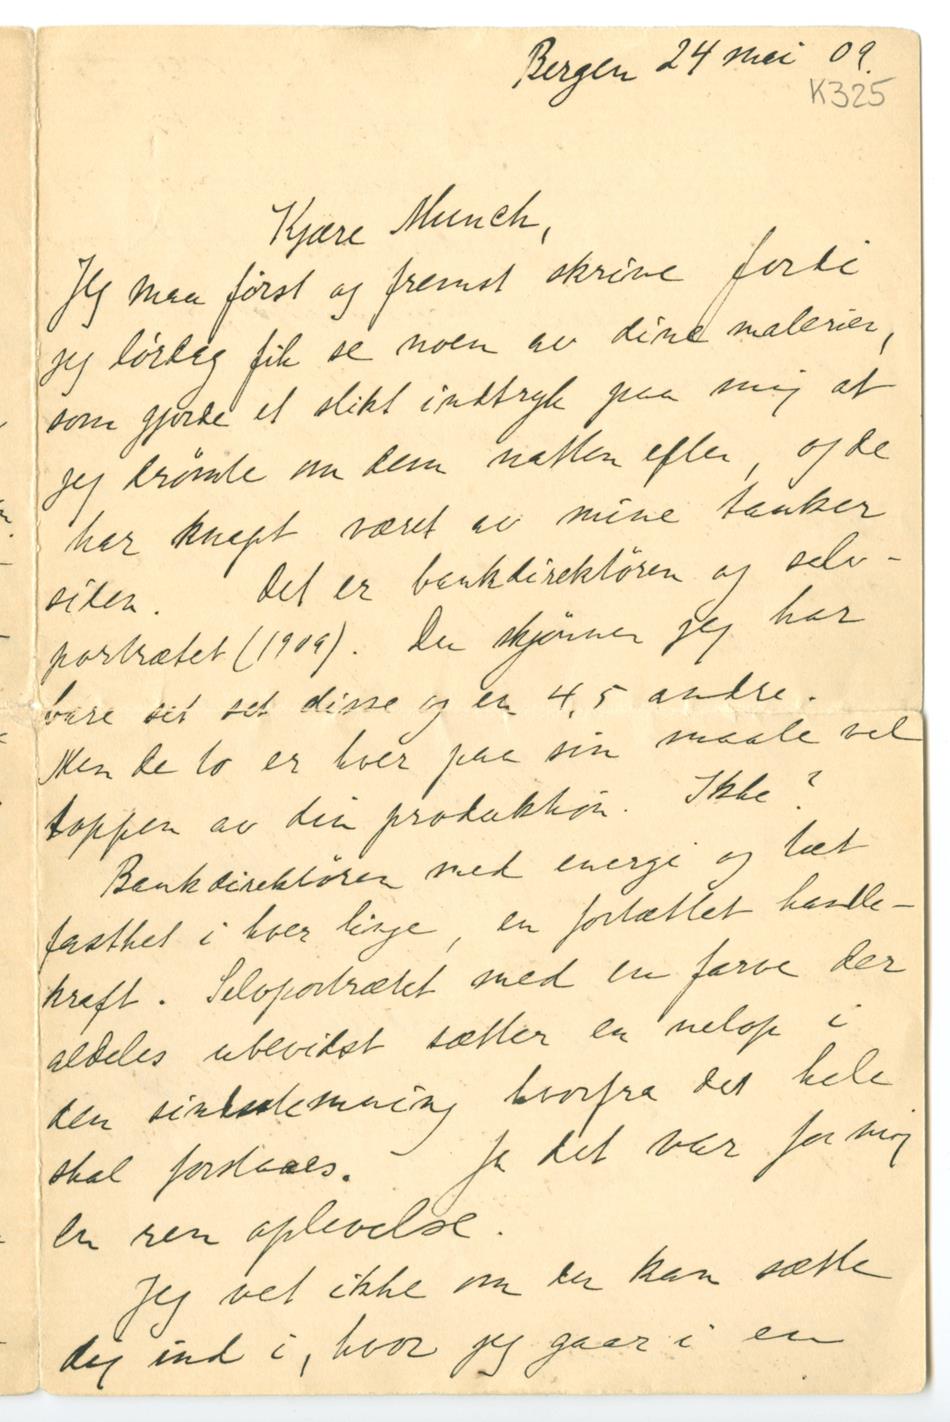 Bergen 24 mai 09.
K325
Kjære Munch,
Jeg maa først og fremst skrive fordi
jeg lørdag fik se noen av dine malerier,
som gjorde et slikt indtryk paa mig at
jeg drømte om dem natten efter, og de
har knapt været av mine tanker
siden. Det er bankdirektören og selv-
portrætet (1909). Du skjønner jeg har
bare set disse og en 4,5 andre.
Men de to er hver paa sin maate vel
toppen av din produktion. Ikke?
Bankdirektören med energi og tæt
fasthet i hver linje, en fortættet handle-
kraft. Selvportrætet med en farve der
aldeles ubevidst sætter en netop i
den sindsstemning hvorfra det hele
skal forstaaes. Ja det var for mig
en ren oplevelse.
Jeg vet ikke om du kan sætte
dig ind i, hvor jeg gaar i en